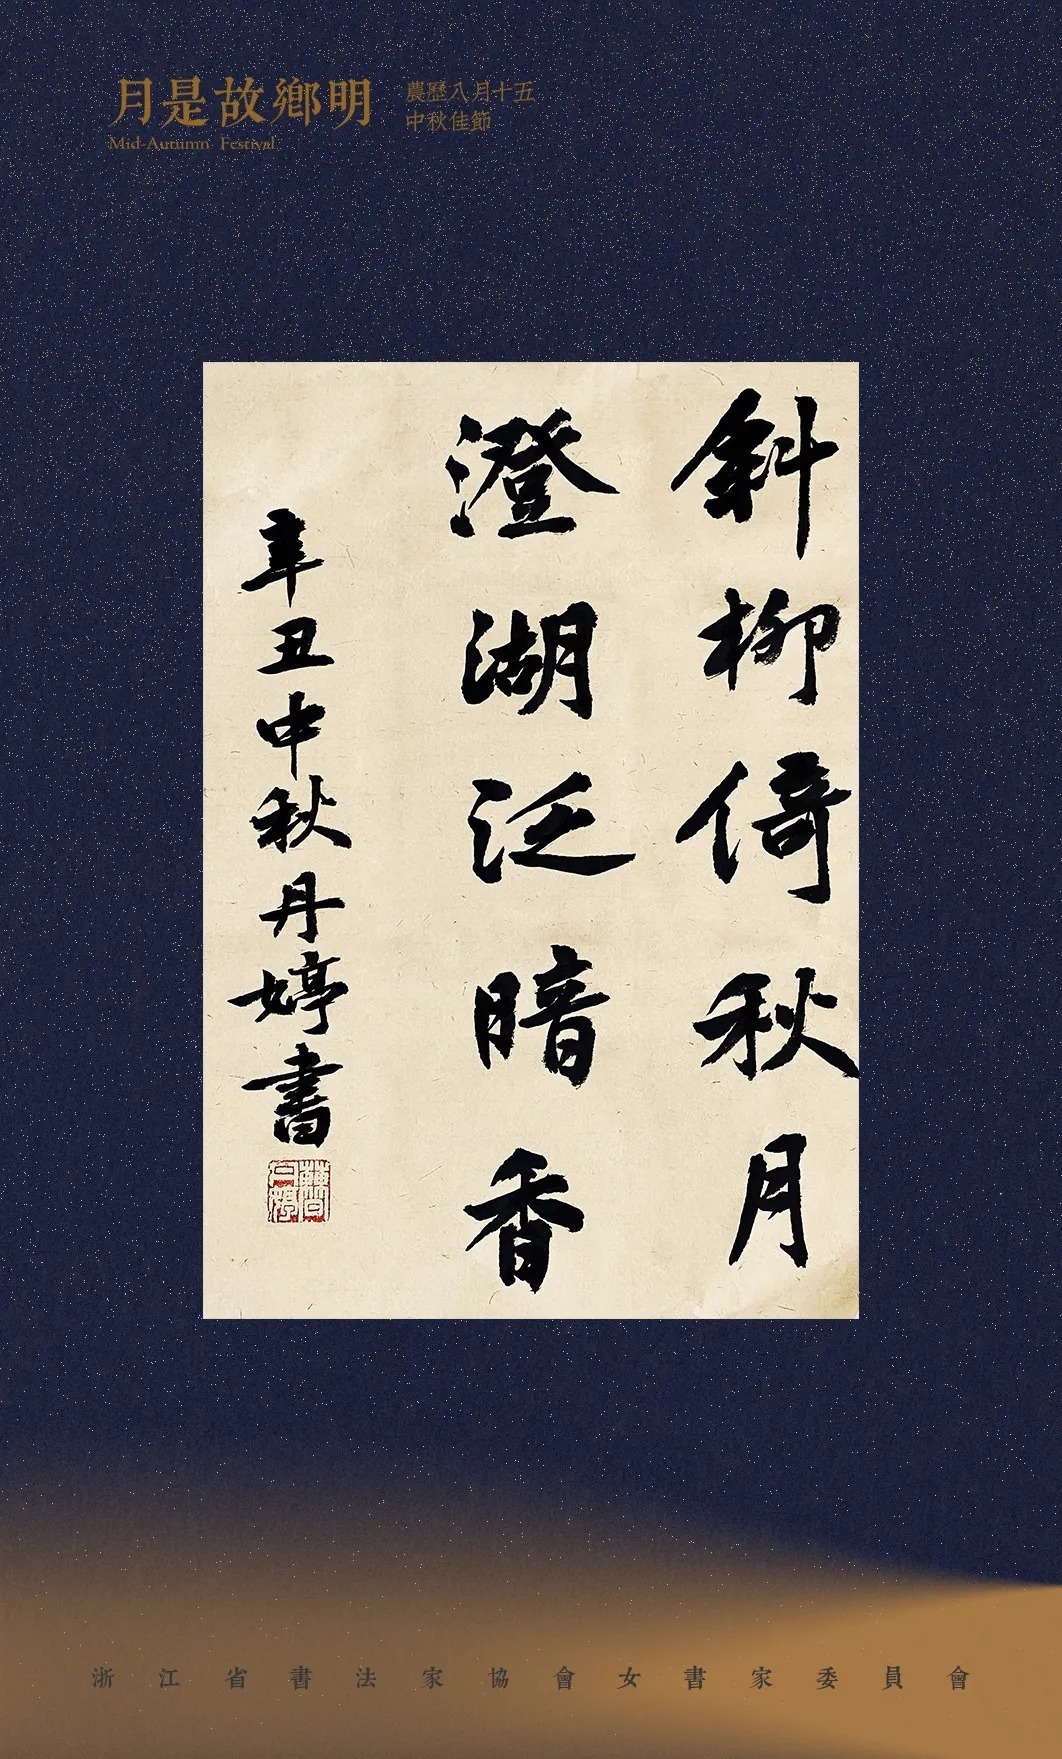 月是故鄉明
Mid-Autumn Festival
農歷八月十五
中秋佳節
斜柳倚秋月
澄湖泛暗香
辛丑中秋丹婷書
浙江省書法家協會女書家委員會